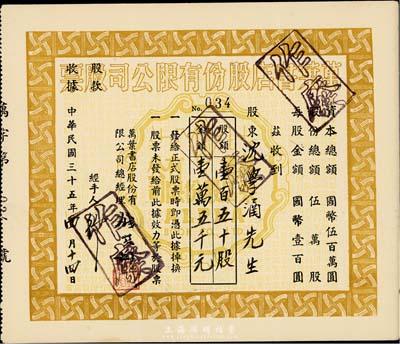 萬葉書店股份有限公司股票
No. 034
資本總額 國幣伍百萬圓
股份總額 伍萬股
每股金額 國幣壹百圓
茲收到
股東 沈 先生
股額 壹百五十股
金額 壹萬五千元
一 發給正式股票時即憑此據掉換
一 股票未發給前此據效力等於股票
萬葉書店股份有限公司總經理
經手人
中華民國三十五年四月十四日
股款收據
作廢
作廢
作廢